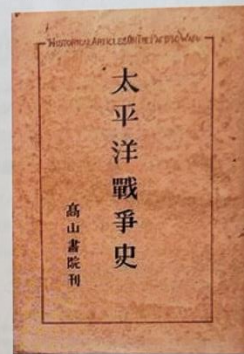 HISTORICAL ARTICLES ON THE PACIFIC WAR
太平洋戰爭史
高山書院刊